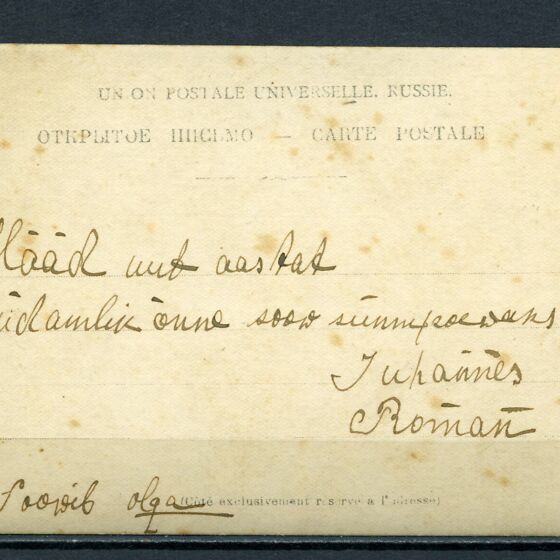 UNION POSTALE UNIVERSELLE. RUSSIE.
ОТКРЫТОЕ ПИСЬМО — CARTE POSTALE
Hääd uut aastat
üdamlik õnne soow sünnipäewaks
Juhannes
Roman
Soowib olga
(Côté exclusivement réservé à l'adresse)